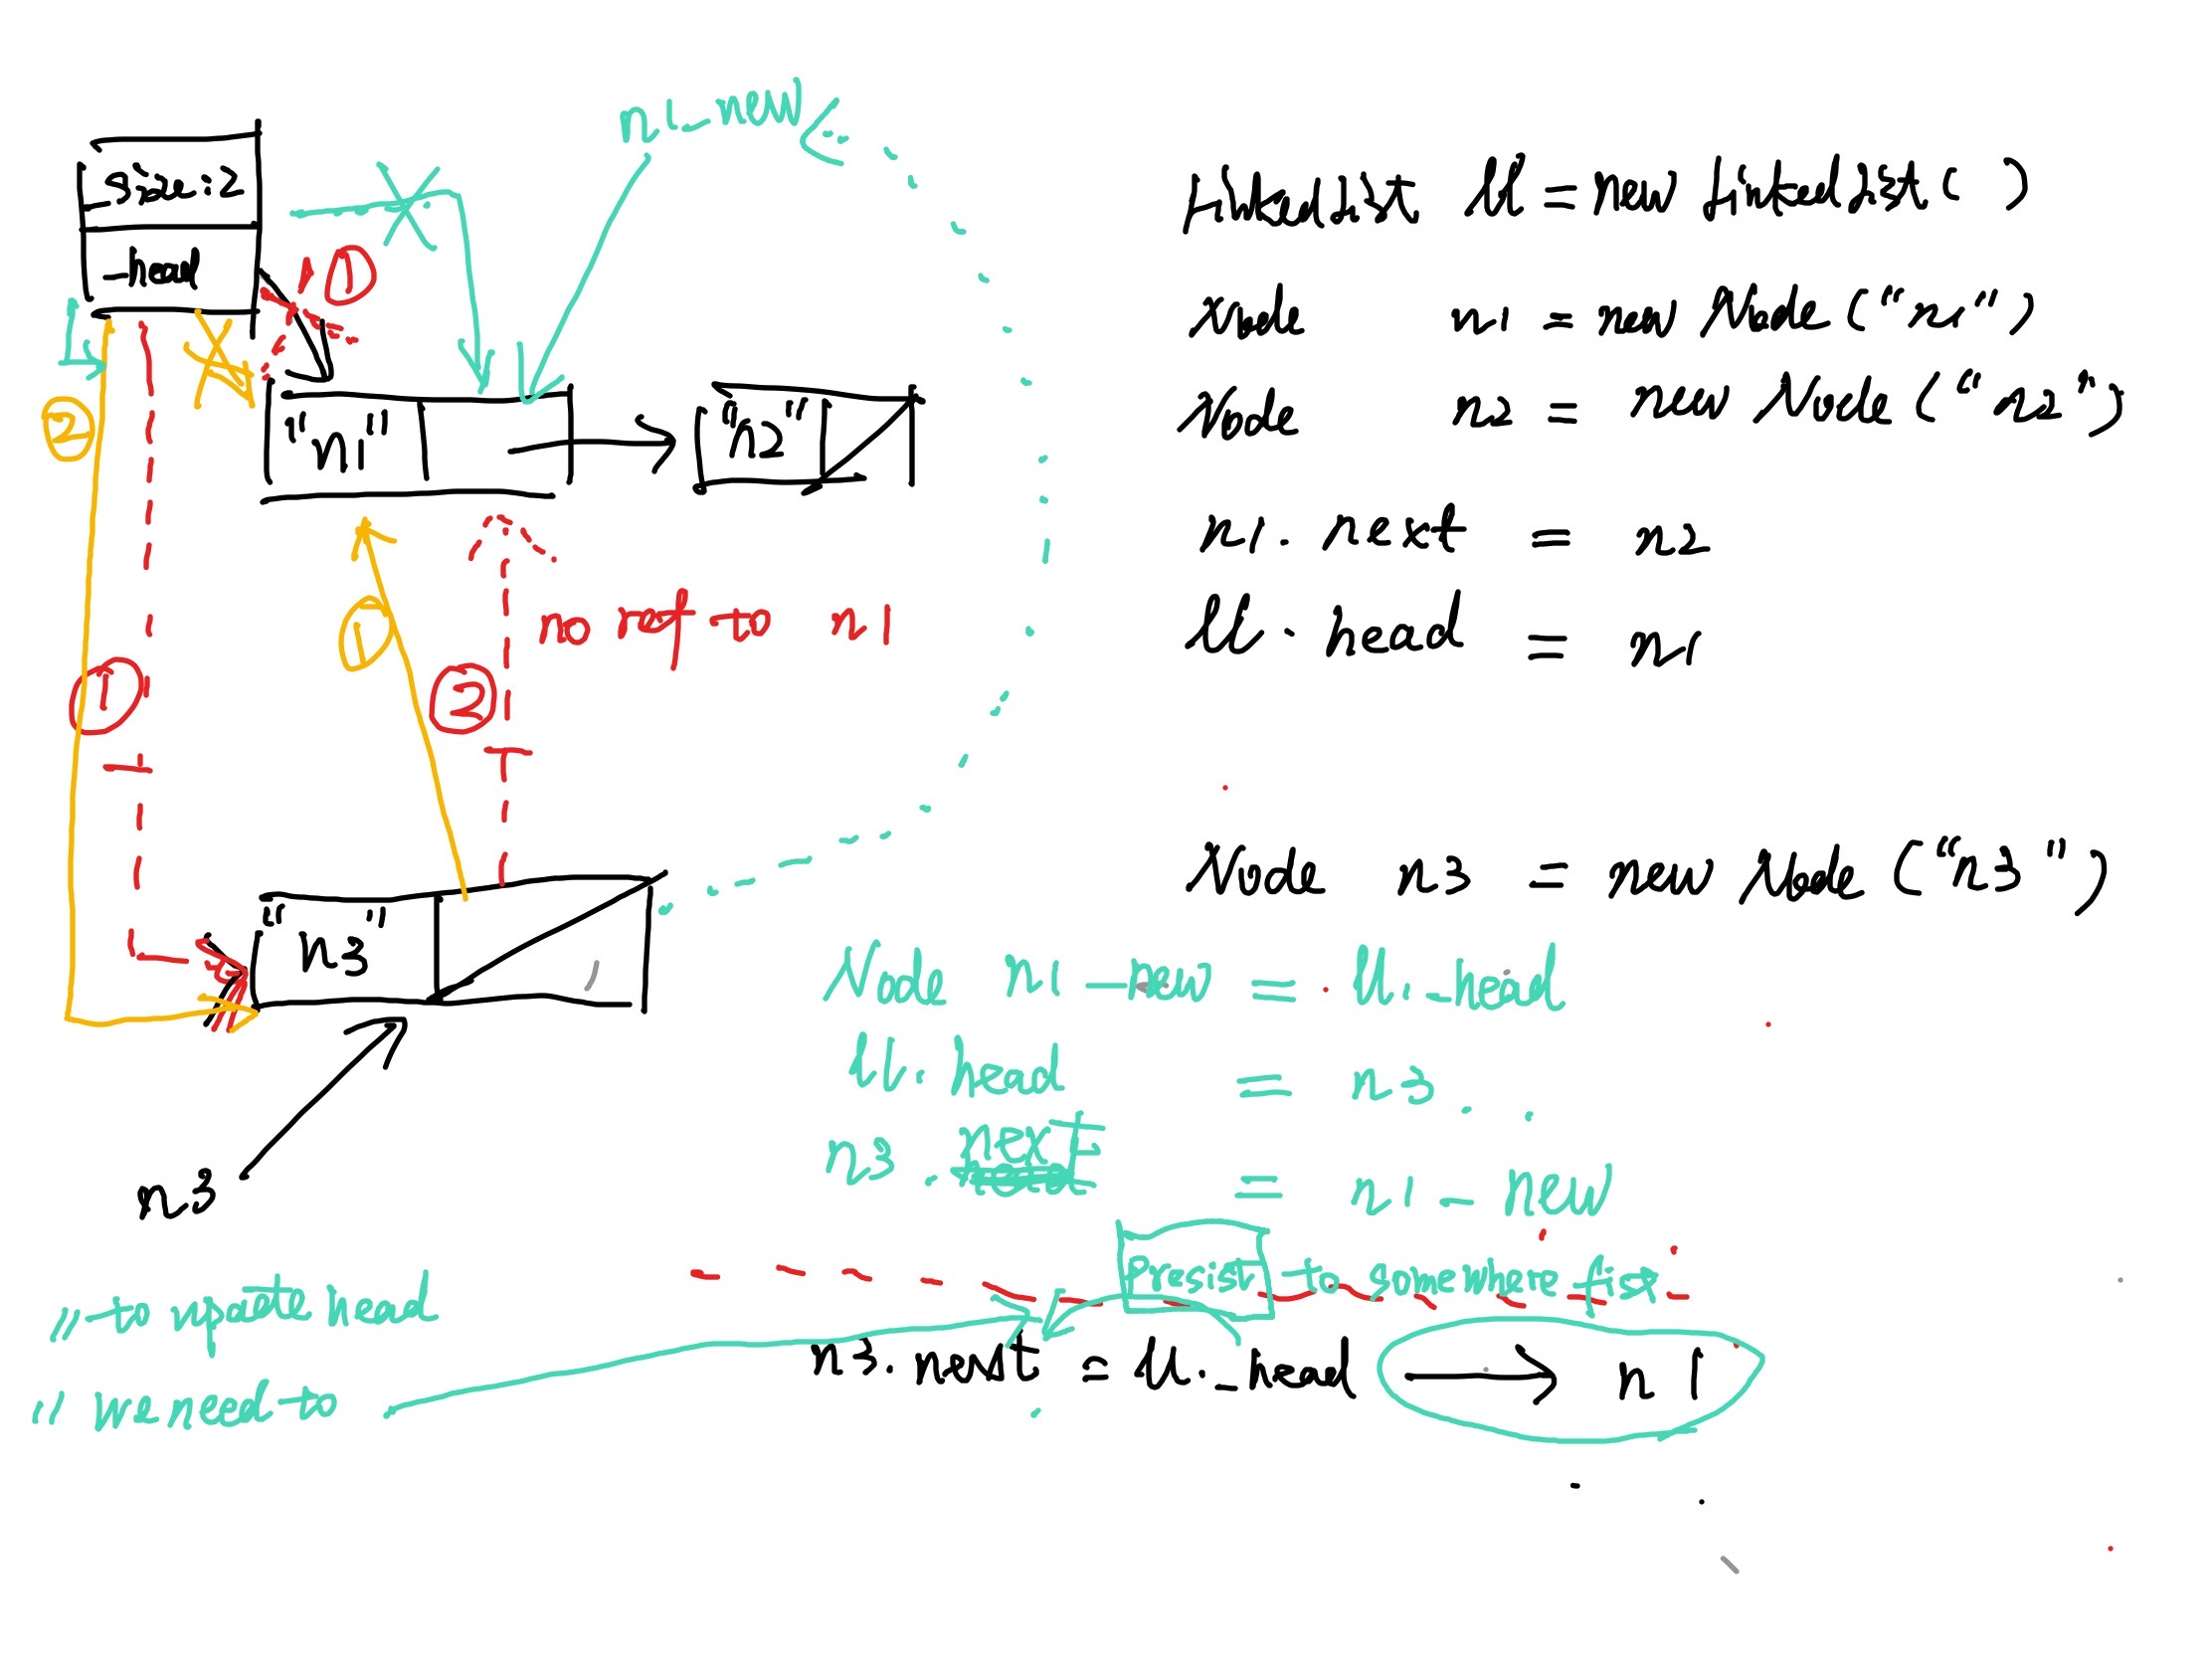 n1_new
_size:2
_head
①
②
"n1"
"n2"
①
no ref to n1
①
②
"n3"
n3
LinkedList ll = new LinkedList ( )
Node n1 = new Node ("n1")
Node n2 = new Node ("n2")
n1. next = n2
ll. head = n1
Node n3 = new Node ("n3")
Node n1_new = ll._head
ll. head = n3
n3. next = n1_new
Presist to somewhere fist
// to update head
n3.next = ll._head → n1
// we need to